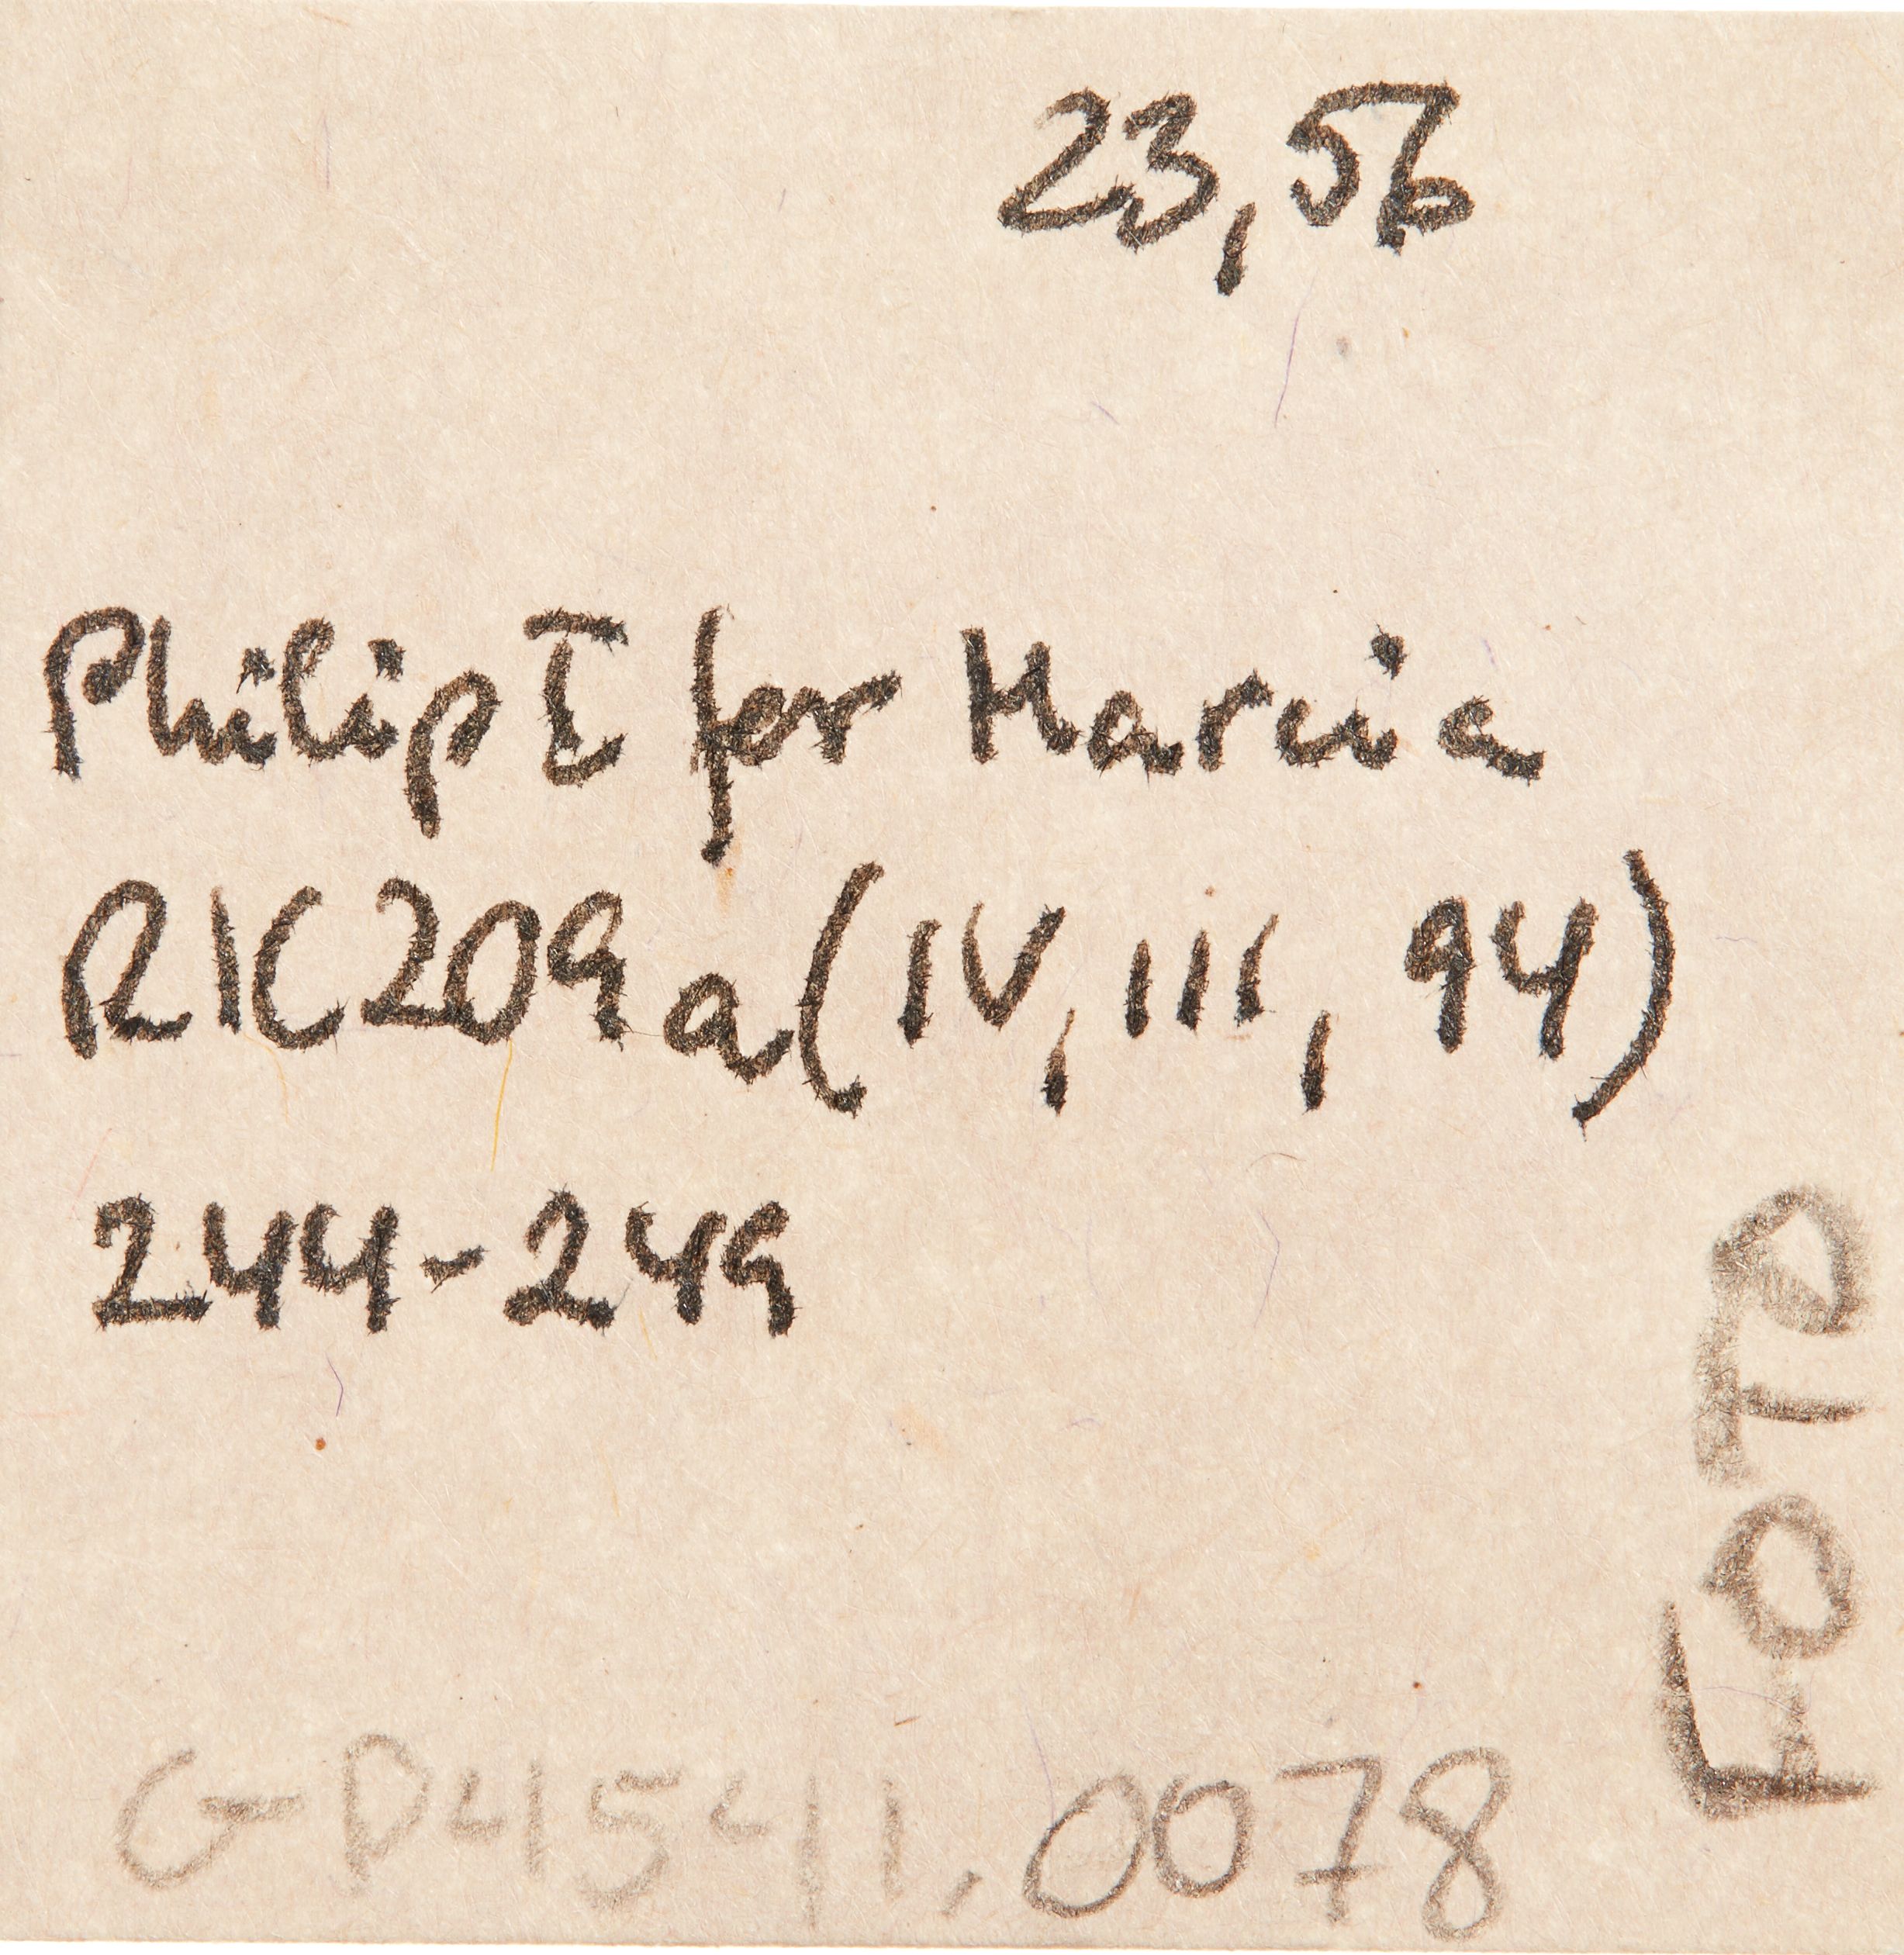 23,56
Philip I for Marcia
RIC 209a (IV, III, 94)
244-249
FOTO
GP4541,0078